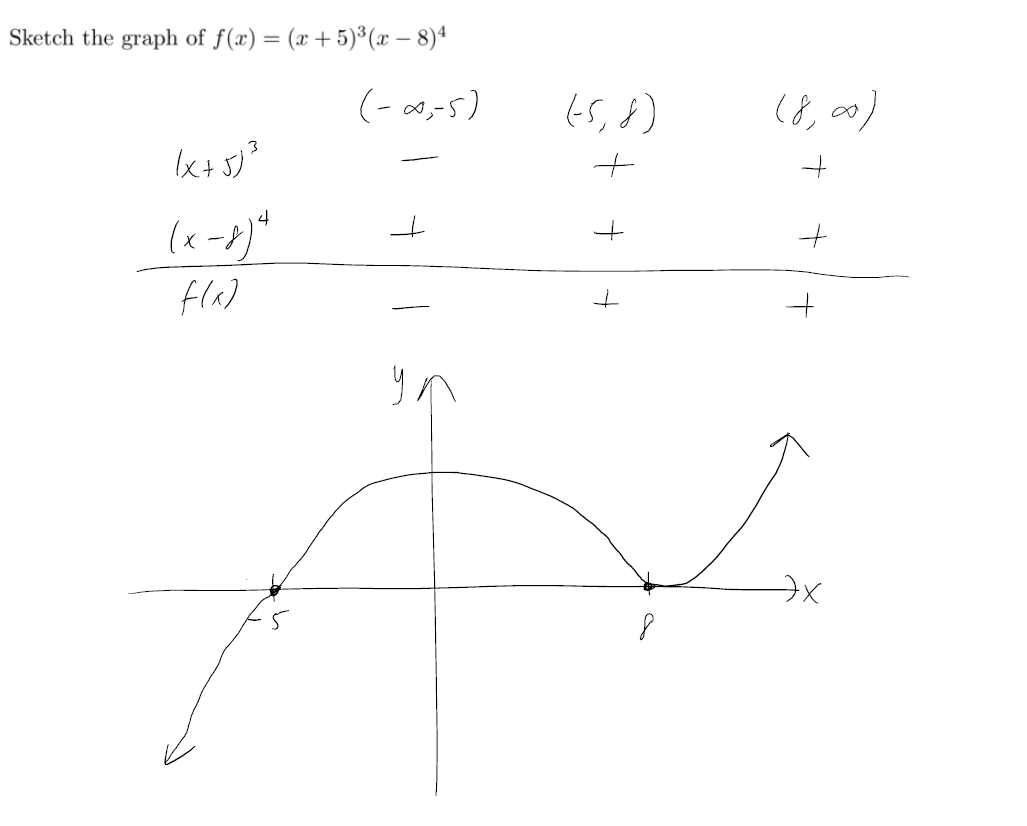 Sketch the graph of f(x) = (x + 5)³(x − 8)⁴
(-∞,-5) (-5, 8) (8, ∞)
(x+5)³ − + +
(x-8)⁴ + + +
f(x) − + +
y
x
-5 8